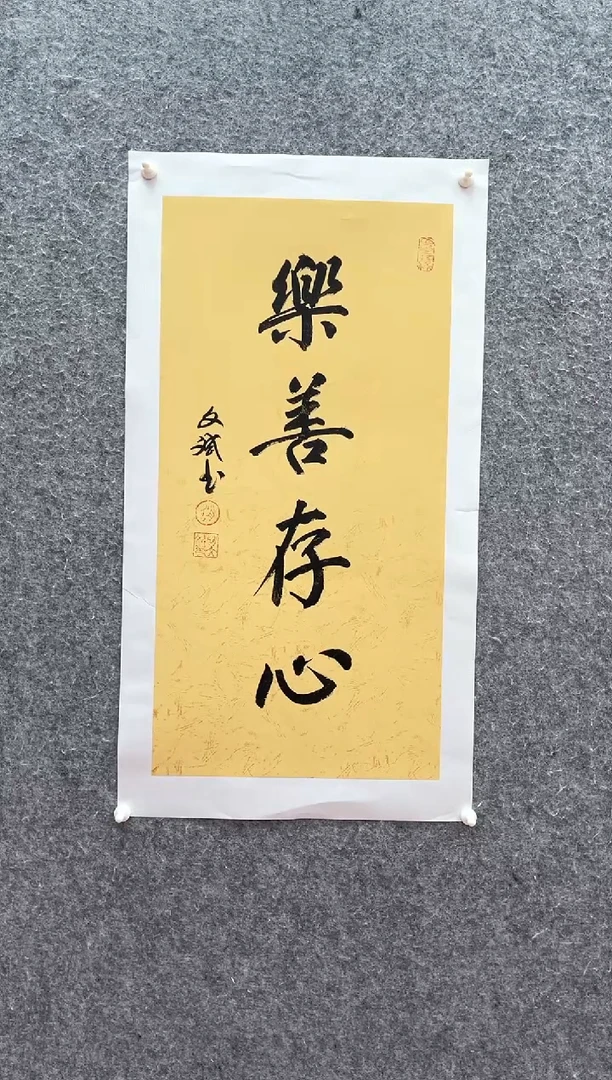 樂善存心
文斌书